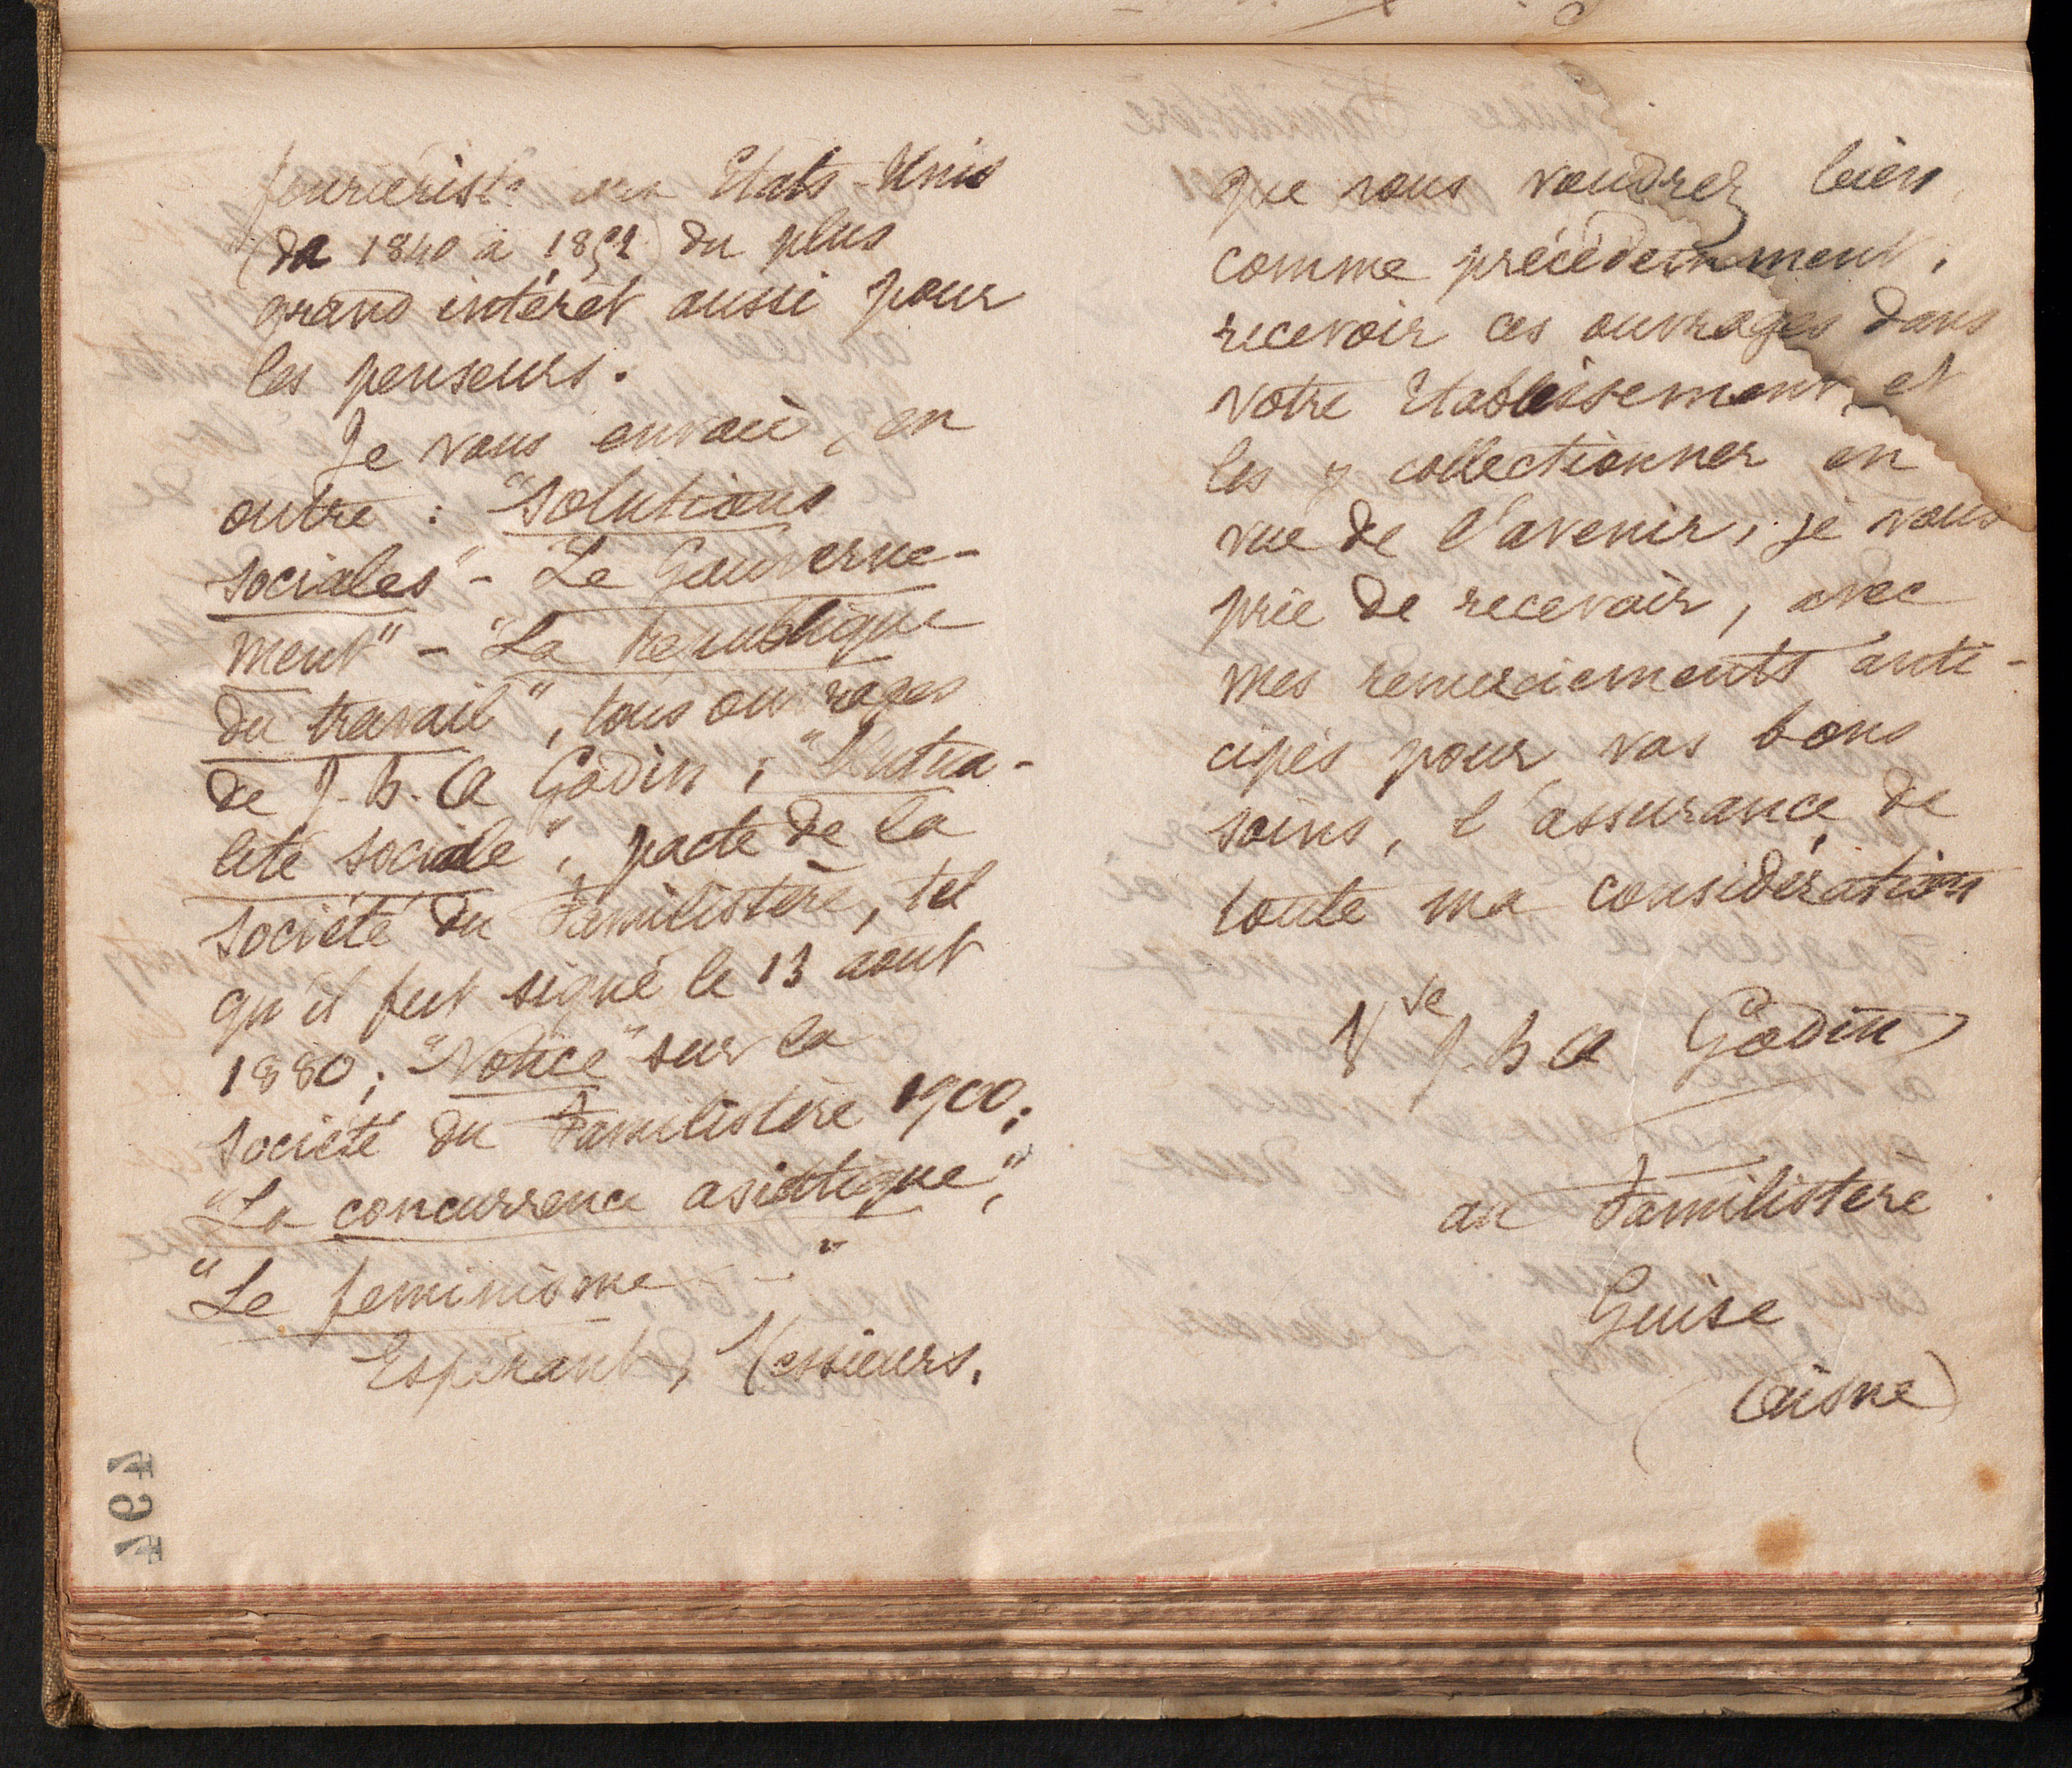 fouriériste aux Etats-Unis
(de 1840 à 1852) du plus
grand intérêt aussi pour
les penseurs.
Je vous envoie, en
outre : "Solutions
sociales" - Le Gouverne-
ment" - "La république
du travail", tous ouvrages
de J. B. A Godin ; "Mutua-
lité sociale", pacte de la
société du Familistère, tel
qu'il fut signé le 13 août
1880 ; "Notice" sur la
société du Familistère 1900 ;
"La concurrence asiatique",
"Le féminisme"
Espérant, Messieurs,
que vous voudrez bien,
comme précédemment,
recevoir ces ouvrages dans
votre Etablissement, et
les y collectionner en
vue de l'avenir, je vous
prie de recevoir, avec
mes remerciements anti-
cipés pour vos bons
soins, l'assurance de
toute ma considération
Vve J. B A Godin
au Familistère
Guise
(Aisne)
497